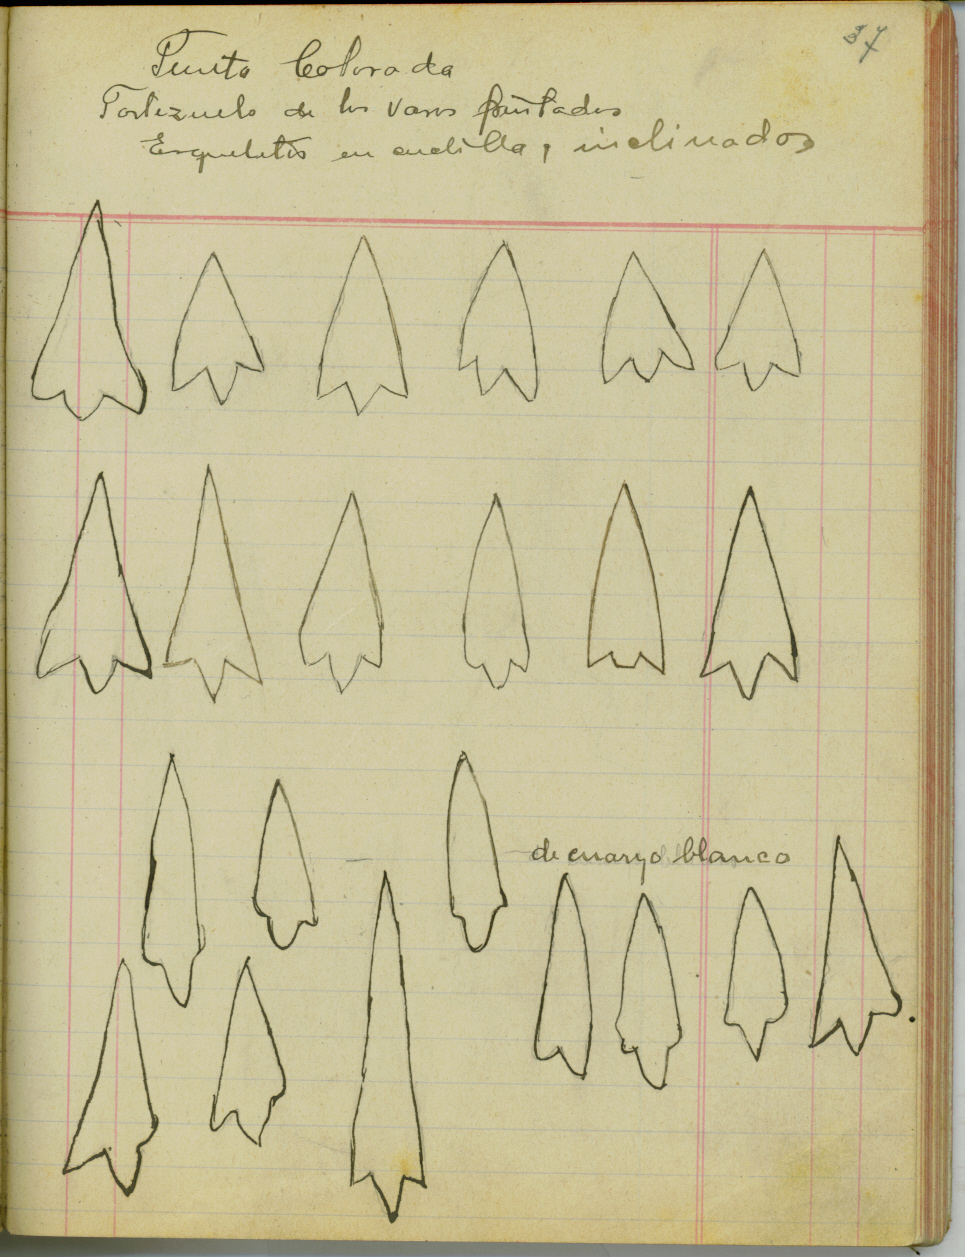 37
Punta Colorada
Portezuelo de los vasos pintados
Esqueletos en cuclilla, inclinados
de cuarzo blanco